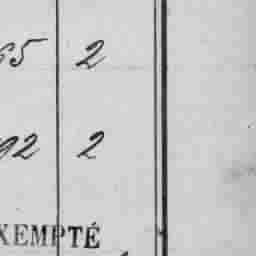 65 2
92 2
EXEMPTÉ